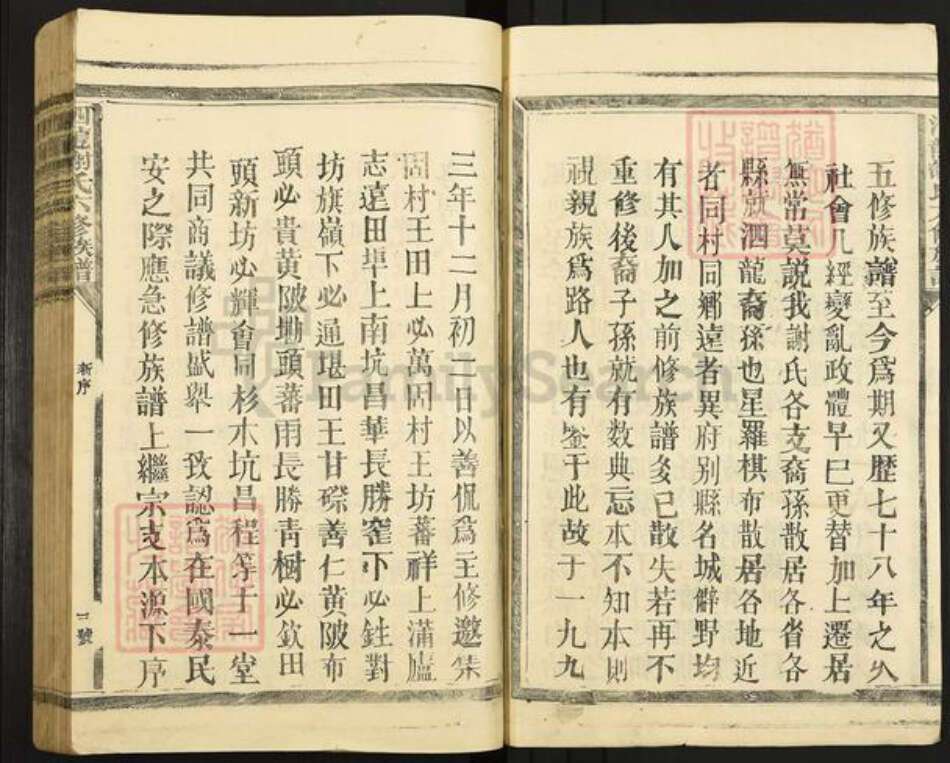 五修族譜至今爲期又歷七十八年之久
社會几經變亂政體早已更替加上遷居
無常莫説我謝氏各支裔孫散居各省各
縣就泗龍裔孫也星羅棋布散居各地近
者同村同鄉遠者異府别縣名城僻野均
有其人加之前修族譜多已散失若再不
重修後裔子孫就有数典忘本不知本則
視親族爲路人也有鉴于此故于一九九
三年十二月初二日以善侃爲主修邀集
固村王田上必萬固村王坊蕃祥上蒲廬
志遠田㘵上南坑昌華長勝窰下必鉎對
坊旗嶺下必通堪田王甘磜善仁黄陂布
頭必貴黄陂坳頭蕃雨長勝青樹必欽田
頭新坊必輝會同杉木坑昌程等于一堂
共同商議修譜盛舉一致認爲在國泰民
安之際應急修族譜上繼宗支本源下序
謝氏六修族譜
新序
三號
FamilySearch